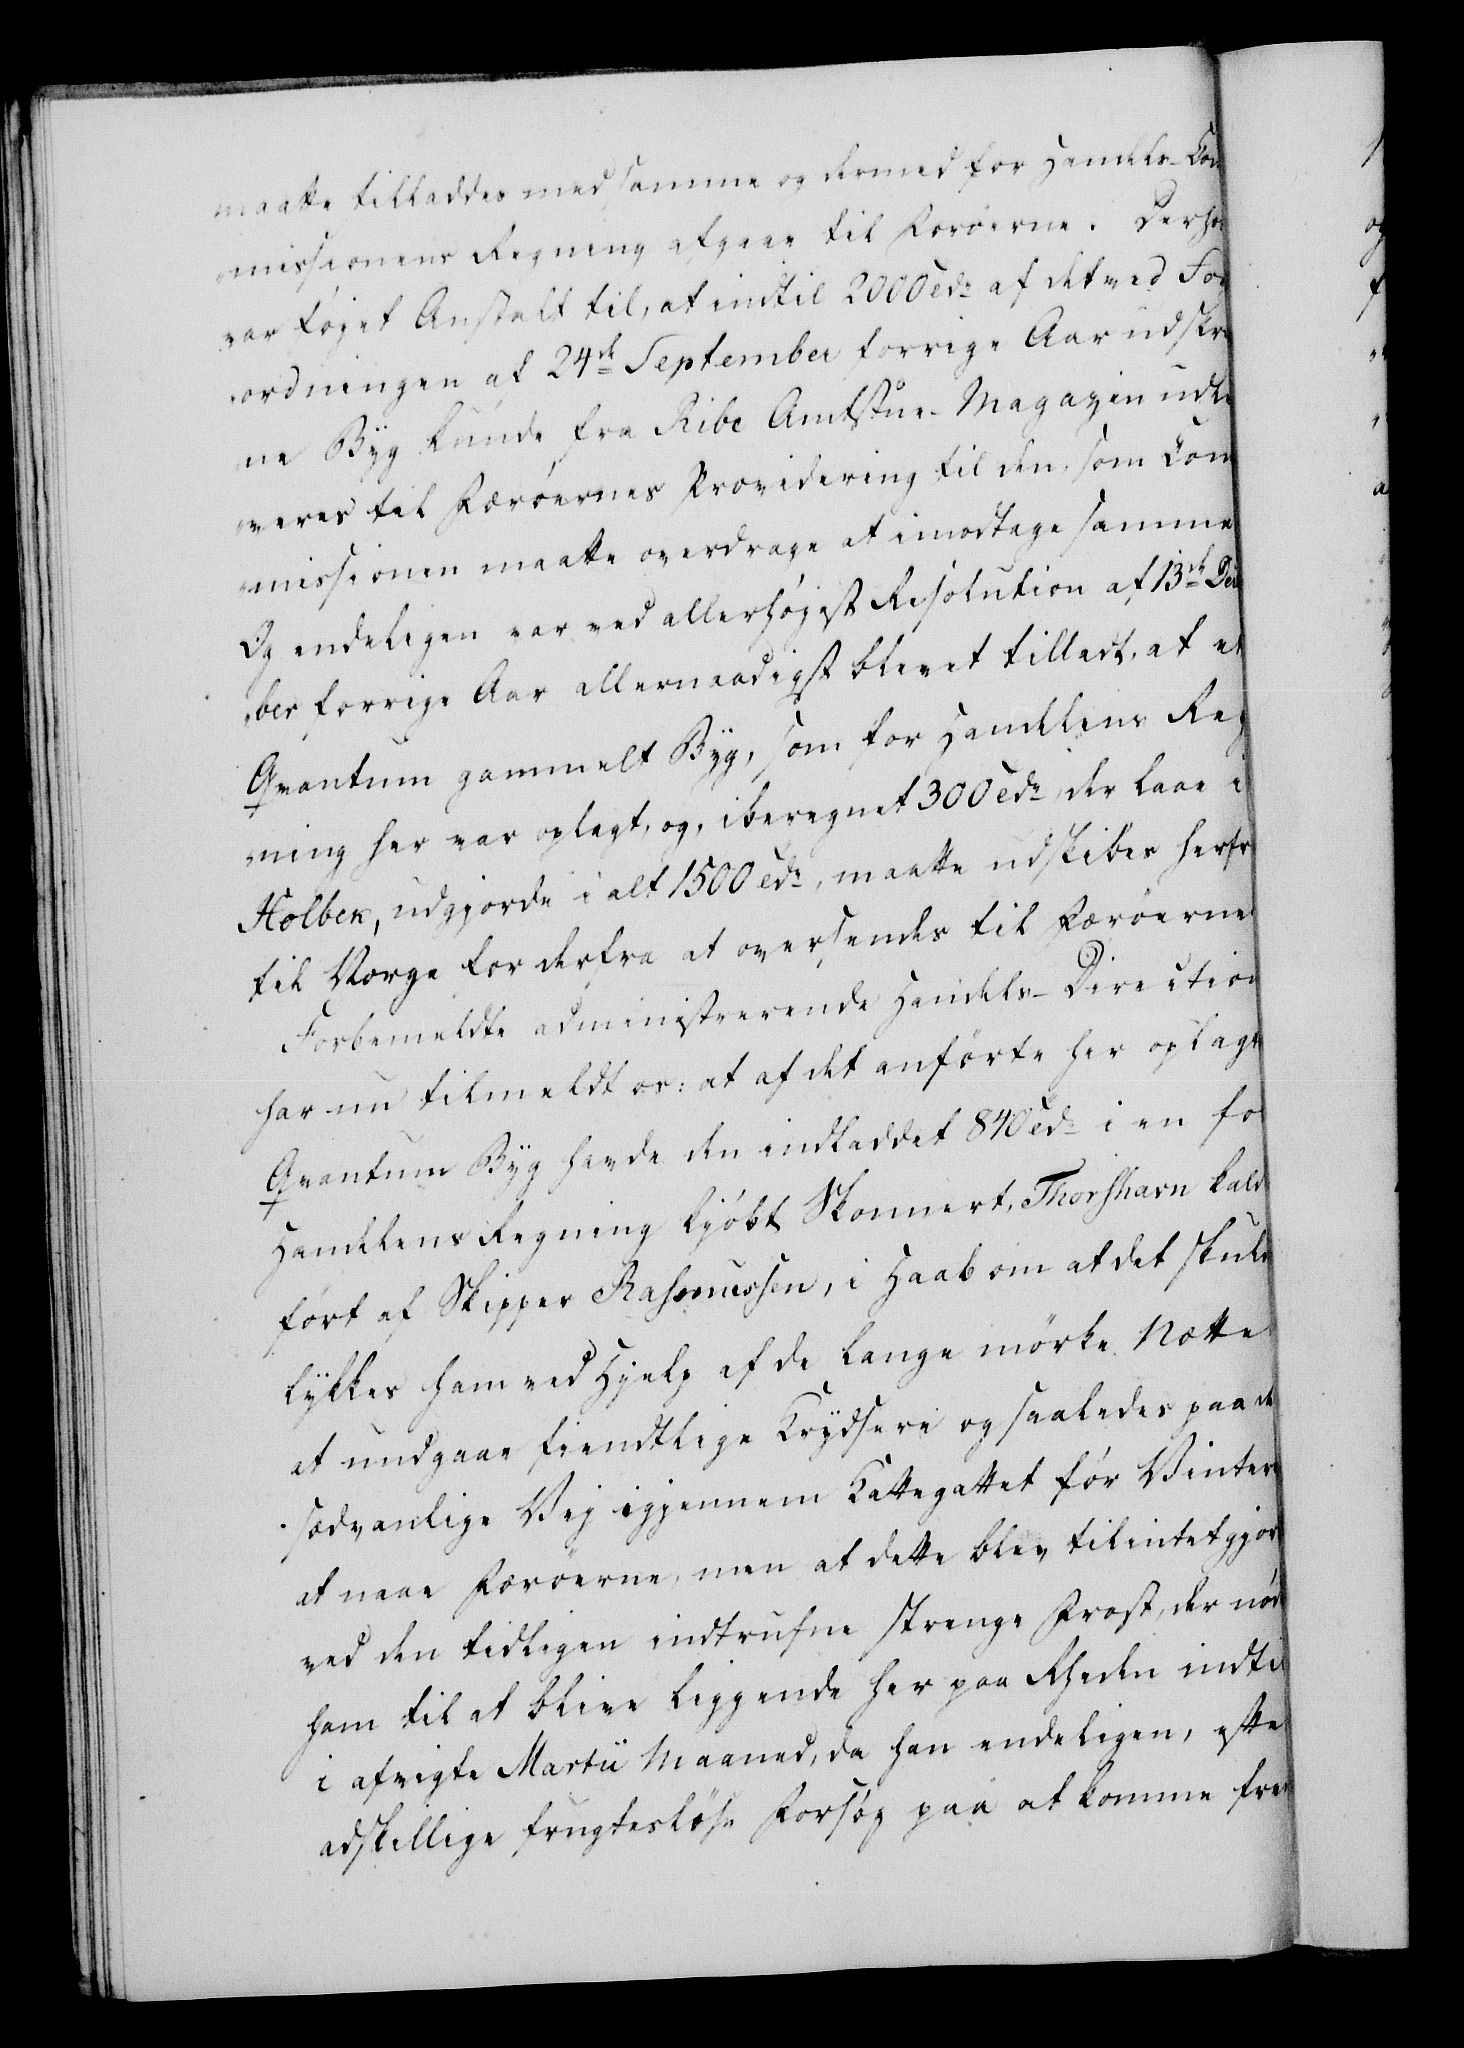 maatte tilladdes med samme og dermed for Handels-Com
missionens Regning afgaae til Færöerne. Derho
var föjet Anstalt til, at indtil 2000 Tdr af det ved For
ordningen af 24de September forrige Aar udskre
ne Byg kunde fra Ribe Amtstue-Magazin udle
veres til Færöernes Providering til den, som Com
missionen maatte overdrage at imodtage samme
Og endeligen var ved allerhöjest Resolution af 13de De
ber forrige Aar allernaadigst blevet tilladt, at et
Qvantum gammelt Byg, som for Handelens Reg
ning her var oplagt, og, iberegnet 300 Tdr, der laae i
Holbek, udgjorde i alt 1500 Tdr, maatte udskibes herfr
til Norge for derfra at oversendes til Færöerne
Forbemeldte administrerende Handels-Direction
har nu tilmeldt os: at af det anförte her oplagte
Qvantum Byg havde den indladdet 840 Tdr i en fo
Handelens Regning kjöbt Skonnert, Thorshavn kald
fört af Skipper Rasmussen, i Haab om at det skulde
lykkes ham ved Hjelp af de lange mörke Nætte
at undgaae fiendtlige Krydsere og saaledes paa de
sædvanlige Vej igjennem Kattegattet för Vintere
at naae Færöerne, men at dette blev tilintetgjor
ved den tidligen indtrufne strenge Frost, der nöd
ham til at blive liggende her paa Rheden indti
i afvigte Martii Maaned, da han endeligen, efte
adskillige frugteslöse Forsög paa at komme frem